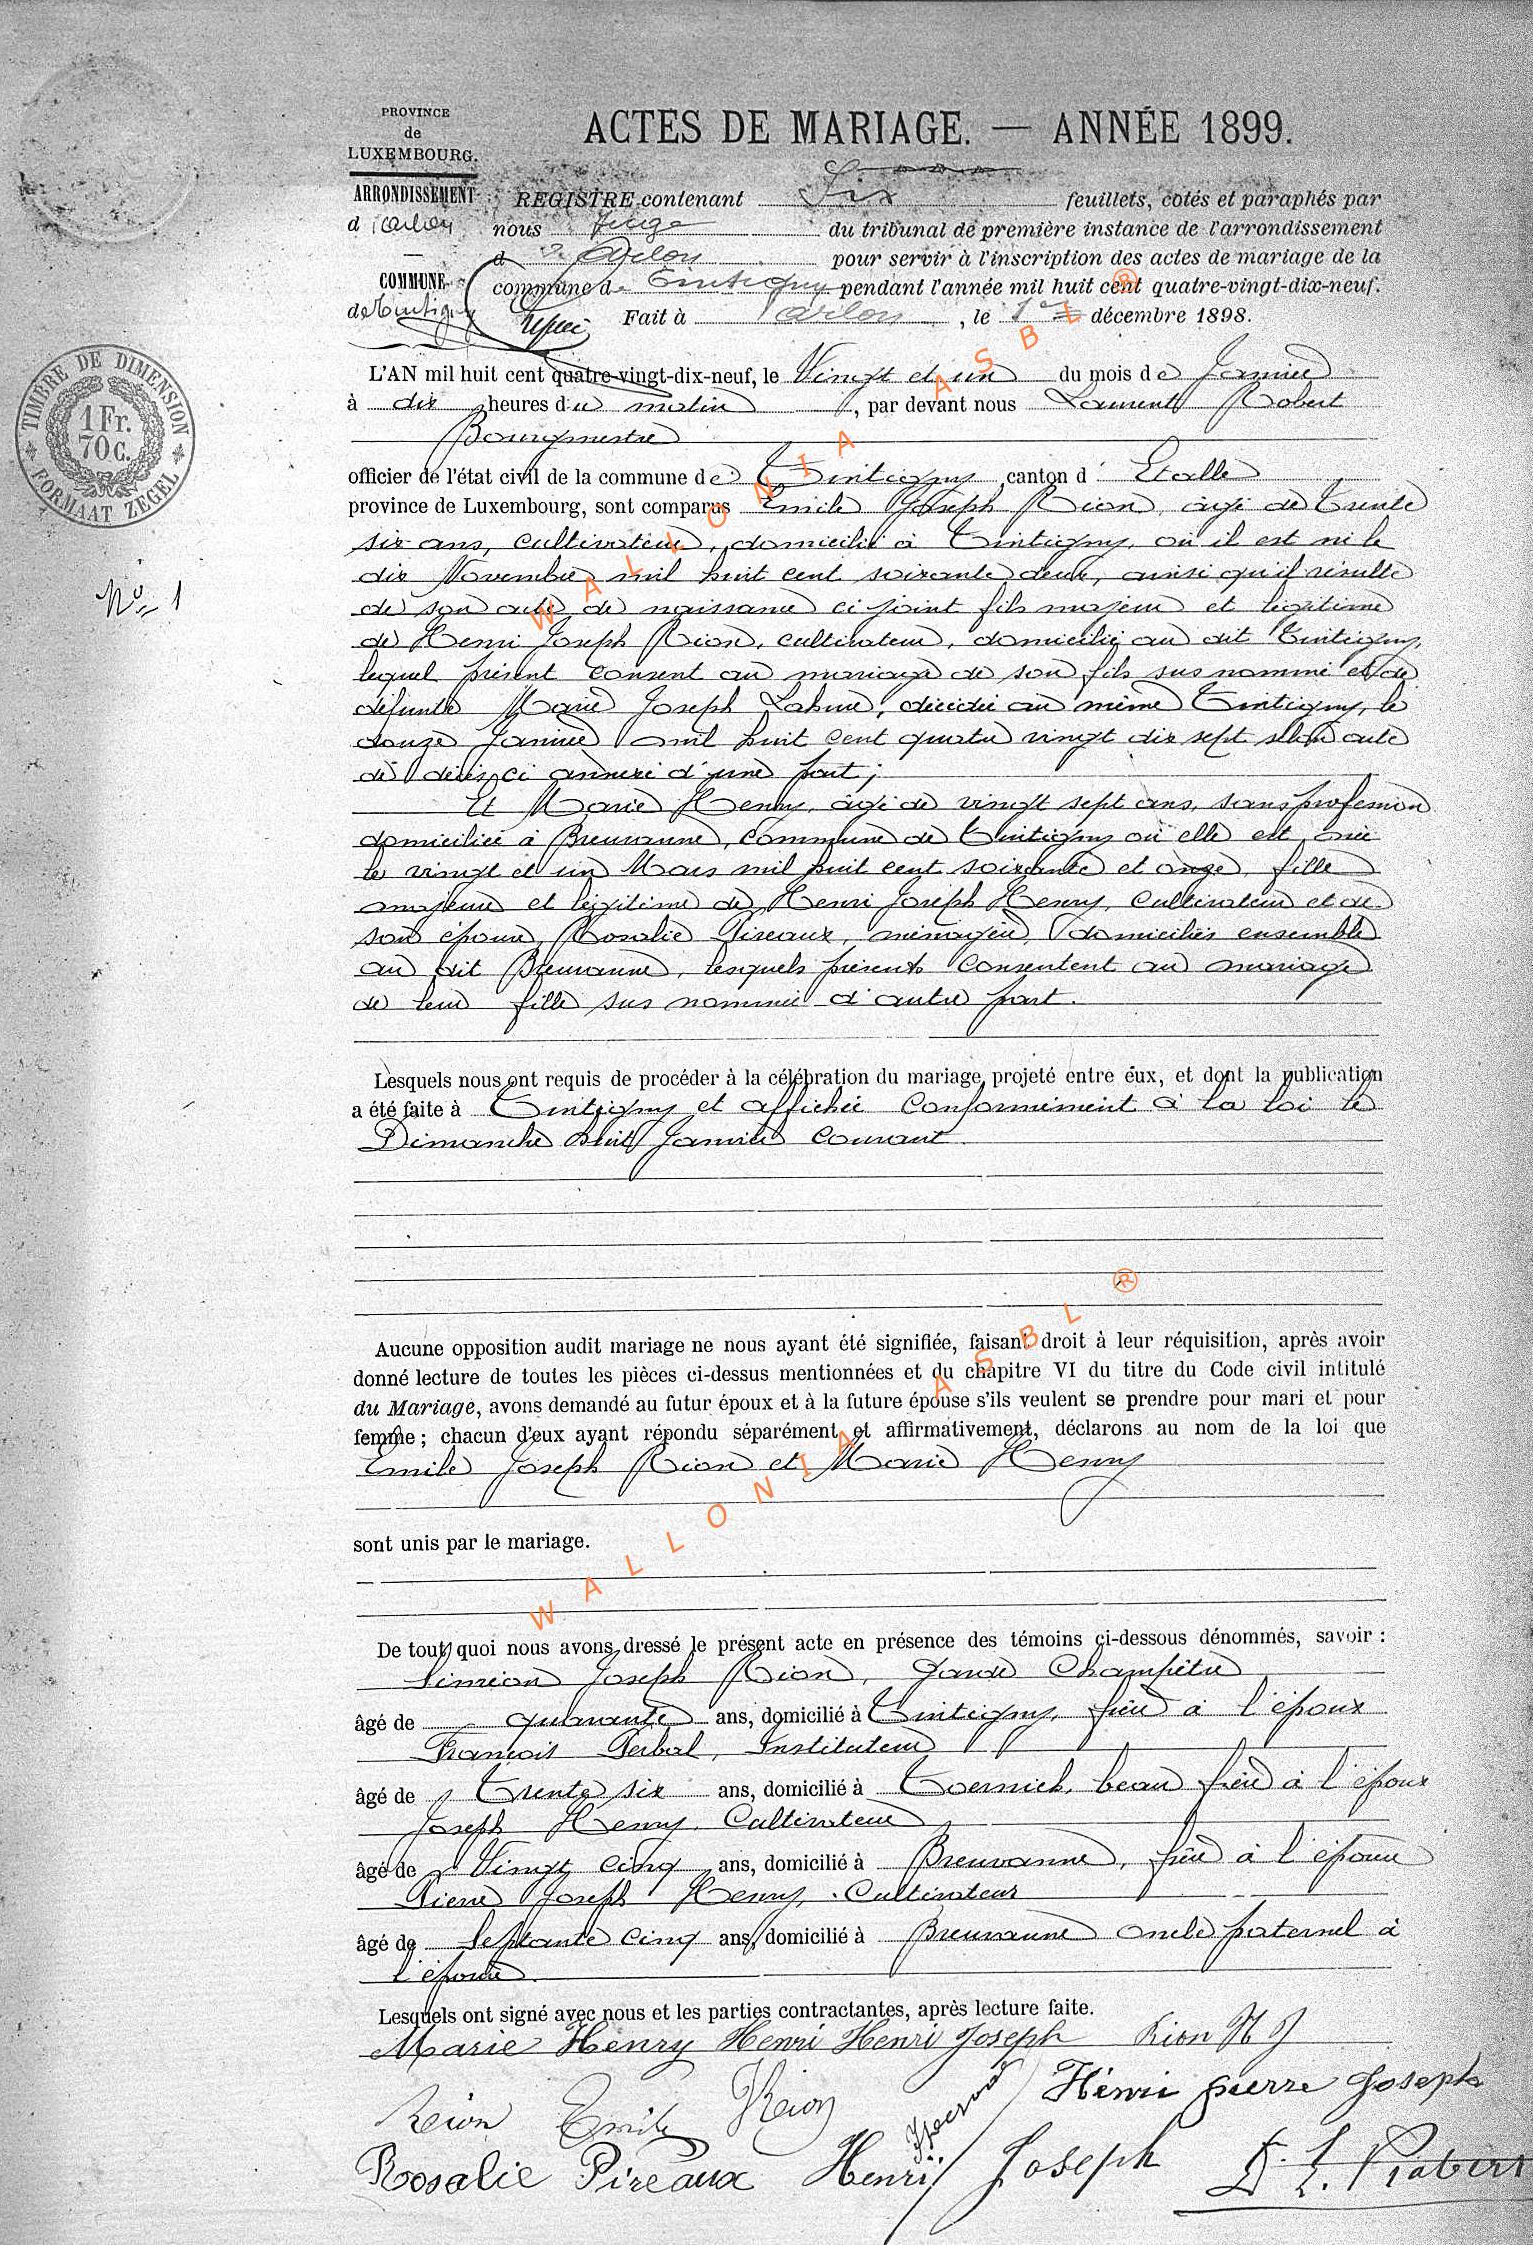 PROVINCE
de
LUXEMBOURG.
ARRONDISSEMENT
d'Arlon
COMMUNE
de Tintigny
ACTES DE MARIAGE. — ANNÉE 1899.
REGISTRE contenant Six feuillets, cotés et paraphés par
nous Juge du tribunal de première instance de l'arrondissement
d'Arlon pour servir à l'inscription des actes de mariage de la
commune de Tintigny pendant l'année mil huit cent quatre-vingt-dix-neuf.
Fait à Arlon, le 1er décembre 1898.
TIMBRE DE DIMENSION
1 Fr.
70 C.
FORMAAT ZEGEL
No 1
L'AN mil huit cent quatre-vingt-dix-neuf, le Vingt et un du mois de Janvier
à dix heures du matin, par devant nous Laurent Robert
Bourgmestre
officier de l'état civil de la commune de Tintigny canton d' Etalle
province de Luxembourg, sont comparus Emile Joseph Rion, âgé de trente
six ans, cultivateur, domicilié à Tintigny, où il est né le
dix Novembre mil huit cent soixante deux, ainsi qu'il résulte
de son acte de naissance ci joint fils majeur et légitime
de Henri Joseph Rion, cultivateur, domicilié au dit Tintigny,
lequel présent consent au mariage de son fils sus nommé et de
défunte Marie Joseph Lahure, décédée au même Tintigny, le
douze Janvier mil huit cent quatre vingt dix sept selon acte
de décès ci annexé d'une part;
Et Marie Henry, âgée de vingt sept ans, sans profession
domiciliée à Breuvanne, commune de Tintigny où elle est née
le vingt et un Mars mil huit cent soixante et onze, fille
majeure et légitime de Henri Joseph Henry, Cultivateur et de
son épouse, Rosalie Pireaux, ménagère, domiciliés ensemble
au dit Breuvanne, lesquels présents consentent au mariage
de leur fille sus nommée d'autre part.
Lesquels nous ont requis de procéder à la célébration du mariage projeté entre eux, et dont la publication
a été faite à Tintigny et affichée conformément à la loi le
Dimanche huit Janvier courant.
Aucune opposition audit mariage ne nous ayant été signifiée, faisant droit à leur réquisition, après avoir
donné lecture de toutes les pièces ci-dessus mentionnées et du chapitre VI du titre du Code civil intitulé
du Mariage, avons demandé au futur époux et à la future épouse s'ils veulent se prendre pour mari et pour
femme ; chacun d'eux ayant répondu séparément et affirmativement, déclarons au nom de la loi que
Emile Joseph Rion et Marie Henry
sont unis par le mariage.
De tout quoi nous avons dressé le présent acte en présence des témoins ci-dessous dénommés, savoir :
Siméon Joseph Rion, Garde Champêtre
âgé de quarante ans, domicilié à Tintigny, frère à l'époux
François Perbal, Instituteur
âgé de Trente six ans, domicilié à Toernich, beau frère à l'époux
Joseph Henry, Cultivateur
âgé de Vingt cinq ans, domicilié à Breuvanne, frère à l'épouse
Pierre Joseph Henry, Cultivateur
âgé de Septante cinq ans, domicilié à Breuvanne oncle paternel à
l'épouse.
Lesquels ont signé avec nous et les parties contractantes, après lecture faite.
Marie Henry Henri Henri Joseph Rion H J
Rion Emile Rion Henri pierre Joseph
Rosalie Pireaux Henri Joseph
WALLONIA ASBL ®
WALLONIA ASBL ®